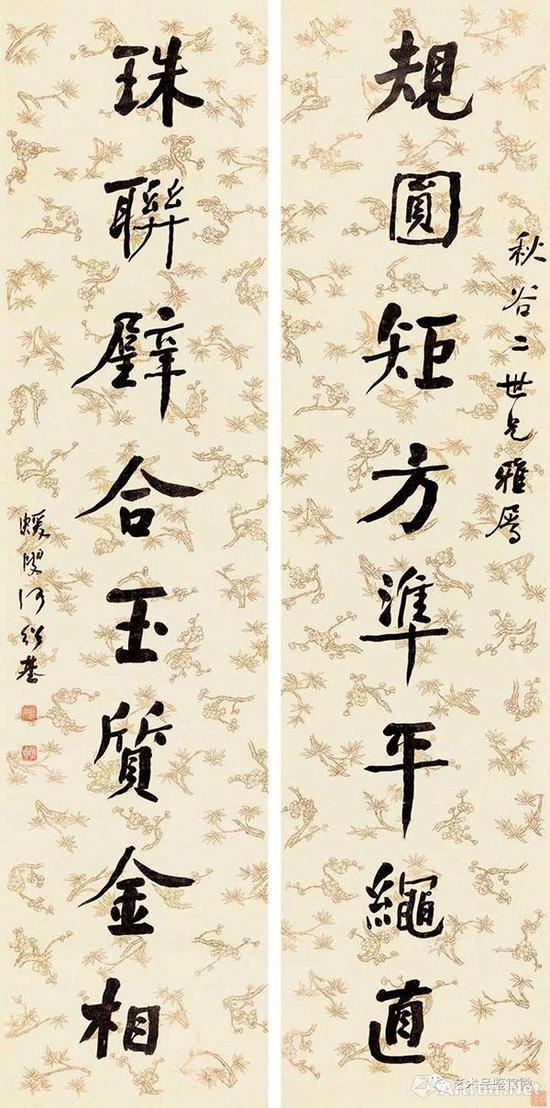 秋谷二世兄雅屬
規圓矩方準平繩直
珠聯璧合玉質金相
蝯叟何紹基
艺术品鉴官微
Artron.Net